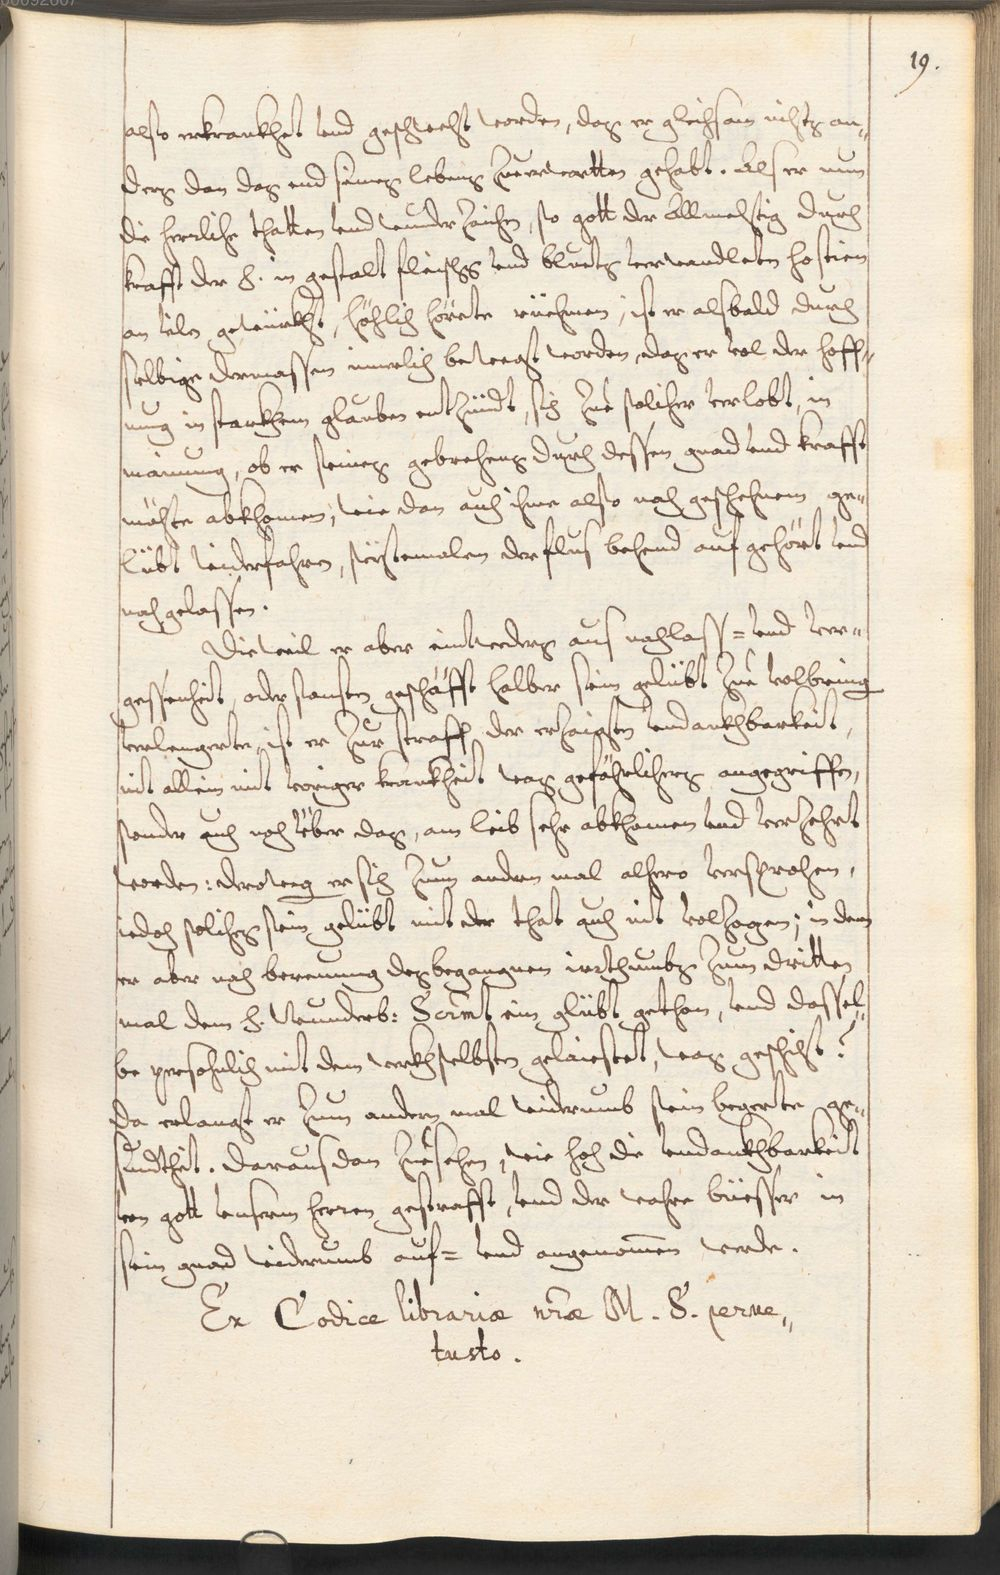 19.
also erkrankhet vnd geschwecht worden, daß er gleichsam nichts an„
ders dan daß end seines lebens zuerwartten gehabt. Als er nun
die herrliche thatten vnd wunderzaichen, so gott der Allmechtig durch
krafft der h. in gestalt fleischs vnd bluets verwandleten hostien
an vilen gewürkht, höchlich hörete rüehmen, ist er alsbald durch
selbige dermassen innerlich bewegt worden, daß er vol der hoff„
nung in starkhem glauben entzündt, sich zue solicher verlobt, in
mainung, ob er seines gebrechens durch dessen gnad vnd krafft
möchte abkhomen; wie dan auch ihme also nach geschehnem ge„
lübt widerfahren, seytemalen der flus behend auf gehört vnd
nachgelassen.
Dieweil er aber eintweders aus nachlass= vnd ver„
gessenheit, oder sonsten geschäfft halber sein gelübt zue volbring
verlengerte, ist er zur straff der erzaigten vndankhbarkeit,
nit allein mit voriger krankheit was gefährlichers angegriffen,
sonder auch noch über das, am leib sehr abkhomen vnd verzehrt
worden: deroweg er sich zum andern mal alhero versprochen,
iedoch soliches sein gelübt mit der that auch nit volzogen; in dem
er aber nach bereuung des begangnen irrthumbs zum dritten
mal dem h. Wunderb: Sacrmt ein glübt gethan, vnd dassel„
be persohnlich mit dem werkh selbsten gelaistet, was geschicht?
da erlangt er zum andern mal widerumb sein begerte ge„
sundtheit. daraus dan zuesehen, wie hoch die vndankhbarkeit
von gott vnserm herren gestrafft, vnd der wahre büesser in
sein gnad widerumb auf= vnd angenomen werde.
Ex Codice librariæ nræ M. S. perve„
tusto.